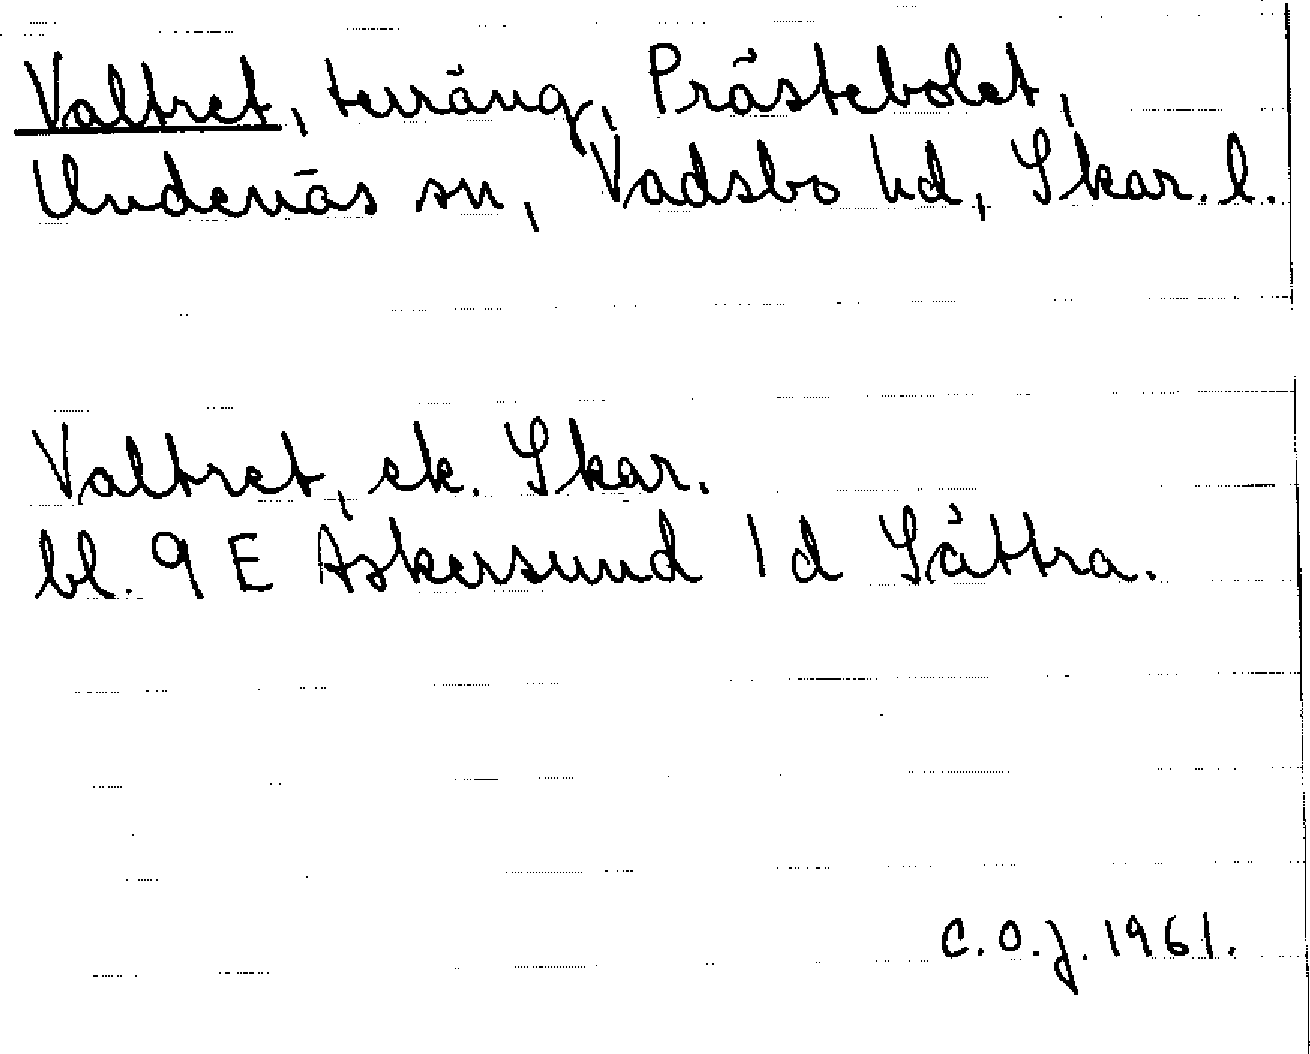 Valtret, terräng, Prästebolet,
Undenäs sn, Vadsbo hd, Skar. l.
Valtret, ek. Skar.
bl. 9 E Askersund 1 d Såttra.
C.O.J. 1961.